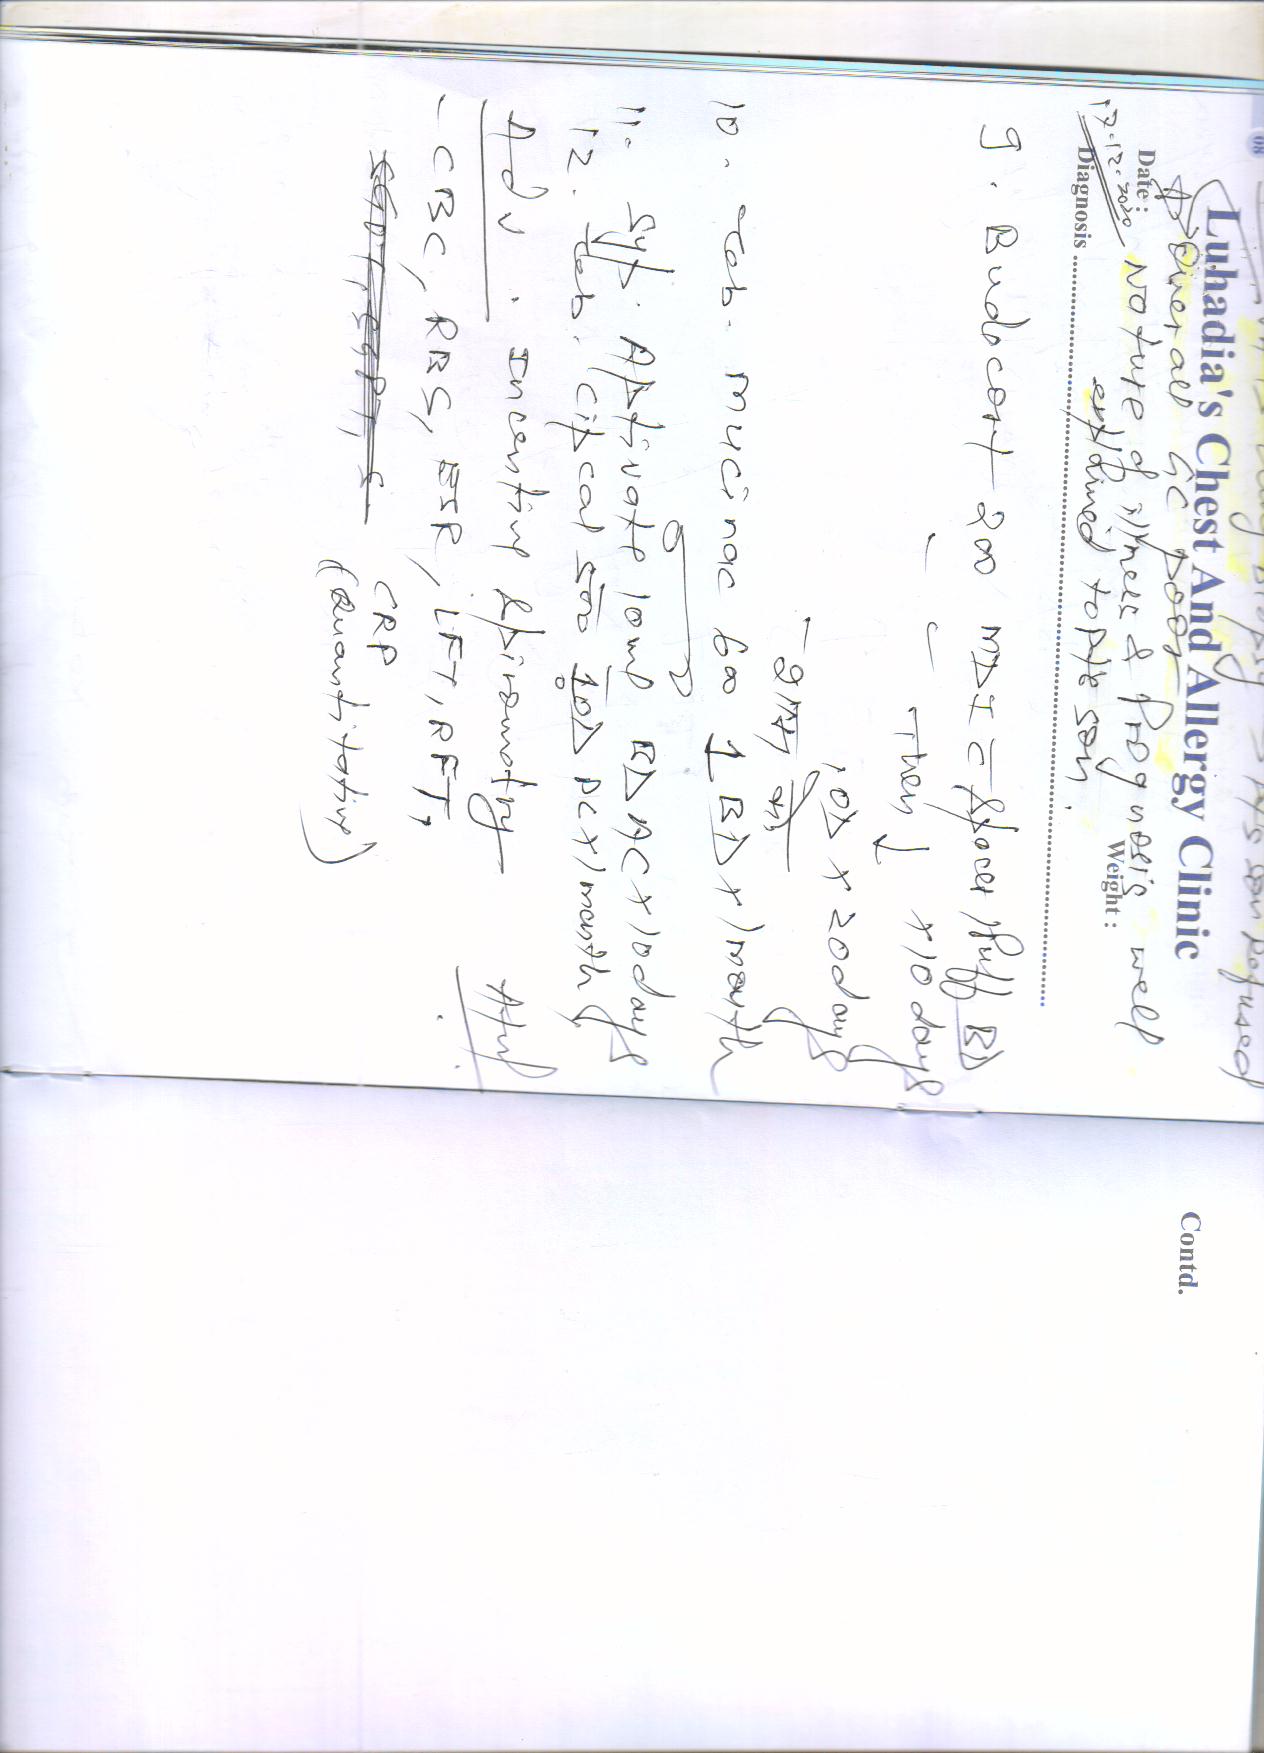 08
Lung Biopsy → Pt's son Refused
Luhadia's Chest And Allergy Clinic
Overall GC poor
Date :
Weight :
17.12.2020
Nature of illness & Prognosis well
explained to Pt's son.
Diagnosis
9. Budecort 200 MDI = Spacer 1 Puff BD
x 10 days
Then ↓
1 OD x 20 days
10. Tab. Mucinac 600 1 BD x 1 month
11. Syp. Aptivate 10 ml BD AC x 10 days
12. Tab. Cipcal 500 1 OD PC x 1 month
Adv. Incentive Spirometry
- CBC, RBS, ESR, LFT, RFT,
SGOT, SGPT, S
CRP
(Quantitative)
Contd.